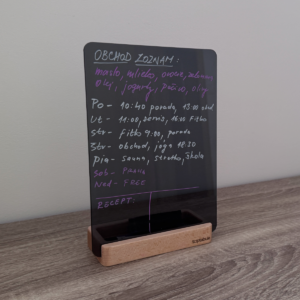 OBCHOD ZOZNAM:
maslo, mlieko, ovocie,
olej, jogurty, pečivo,
Po - 10:40 porada, 13:00 obed
Ut - 11:00, servis, 16:00 Fitko
Str - Fitko 9:00, porada
Štv - obchod, jóga 18:30
Pia - sauna, škola
Sob - Praca
Ned - FREE
RECEPT: